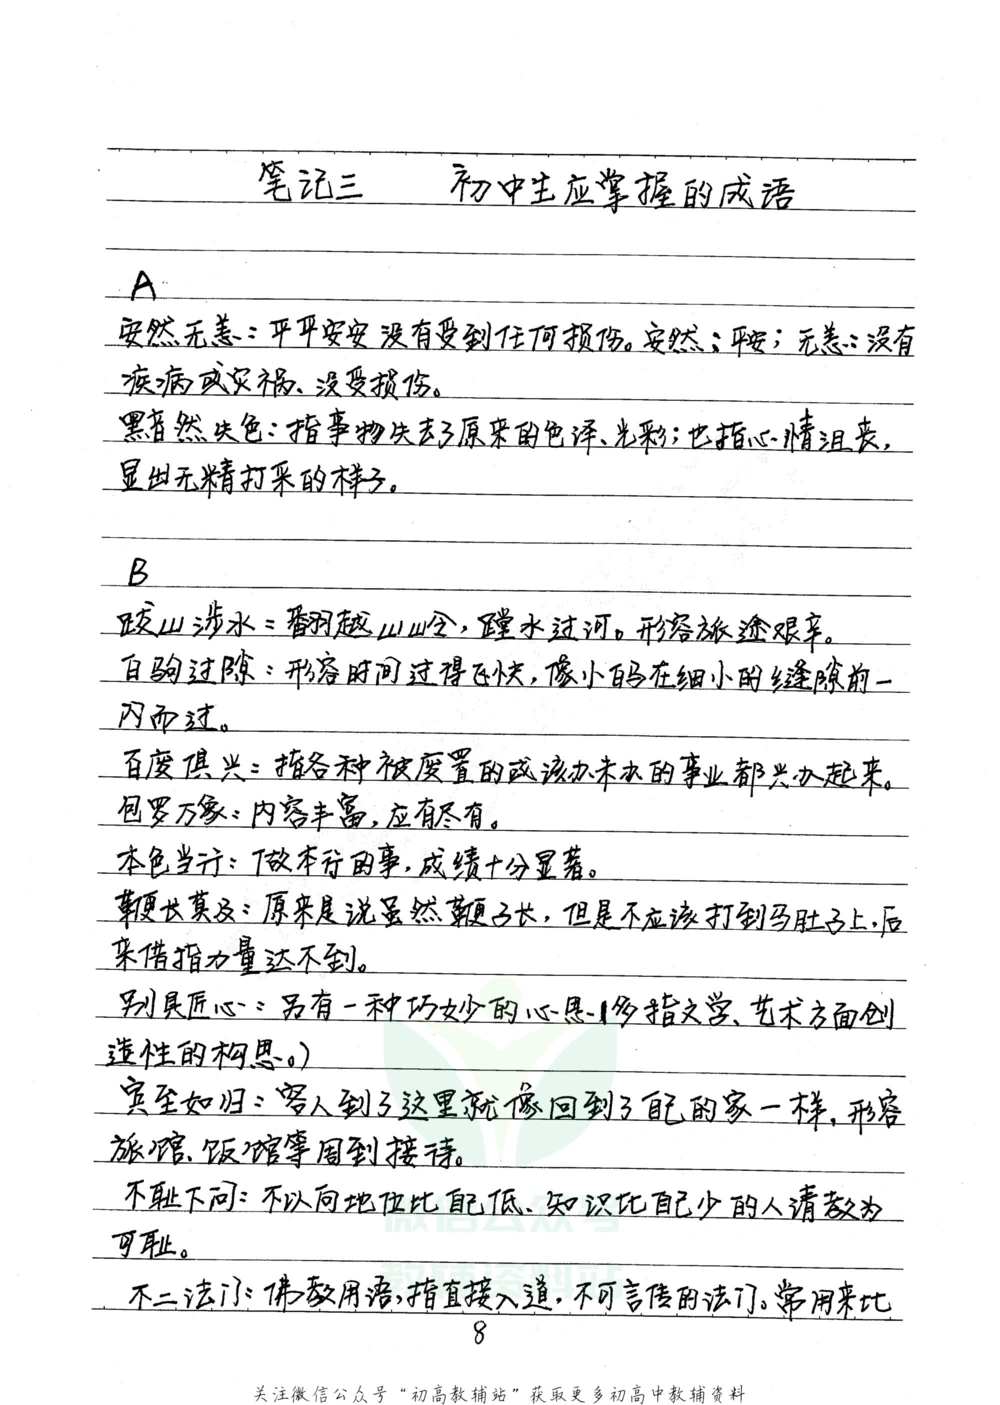 笔记三 初中生应掌握的成语
A
安然无恙：平平安安没有受到任何损伤。安然：平安；无恙：没有
疾病或灾祸、没受损伤。
黯然失色：指事物失去了原来的色泽、光彩；也指心情沮丧，
显出无精打采的样子。
B
跋山涉水：翻越山岭，蹚水过河。形容旅途艰辛。
白驹过隙：形容时间过得飞快，像小白马在细小的缝隙前一
闪而过。
百废俱兴：指各种被废置的或该办未办的事业都兴办起来。
包罗万象：内容丰富，应有尽有。
本色当行：做本行的事，成绩十分显著。
鞭长莫及：原来是说虽然鞭子长，但是不应该打到马肚子上，后
来借指力量达不到。
别具匠心：另有一种巧妙的心思（多指文学、艺术方面创
造性的构思。）
宾至如归：客人到了这里就像回到了自己的家一样，形容
旅馆、饭馆等周到接待。
不耻下问：不以向地位比自己低、知识比自己少的人请教为
可耻。
不二法门：佛教用语，指直接入道，不可言传的法门。常用来比
8
关注微信公众号“初高教辅站”获取更多初高中教辅资料